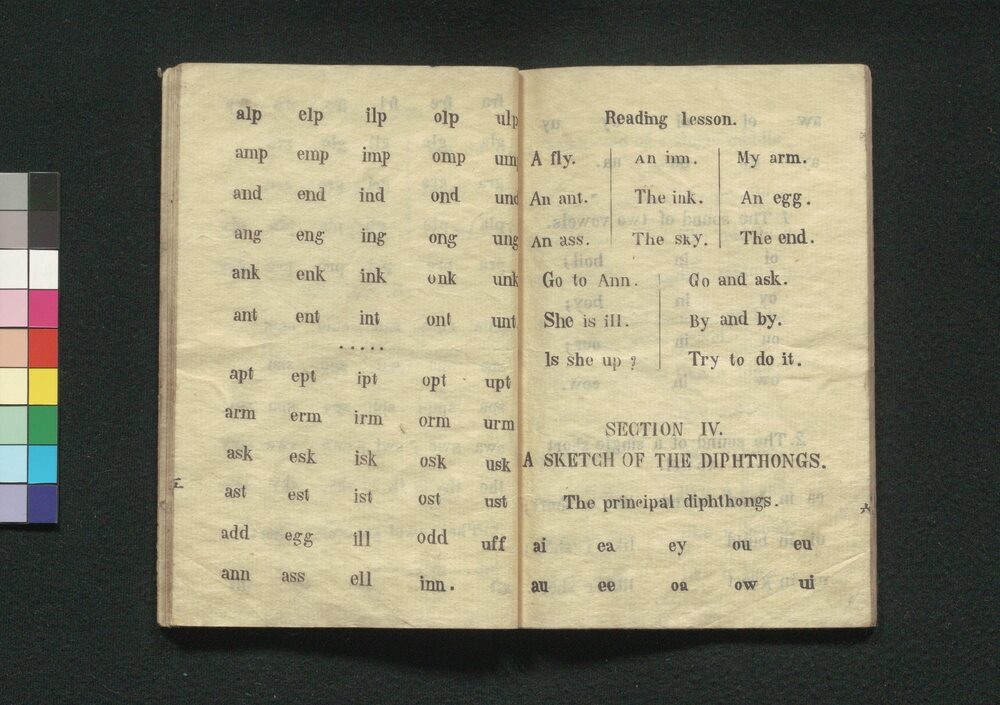 alp elp ilp olp ulp
amp emp imp omp um
and end ind ond und
ang eng ing ong ung
ank enk ink onk unk
ant ent int ont unt
.....
apt ept ipt opt upt
arm erm irm orm urm
ask esk isk osk usk
ast est ist ost ust
add egg ill odd uff
ann ass ell inn.
五
Reading lesson.
A fly. An inn. My arm.
An ant. The ink. An egg.
An ass. The sky. The end.
Go to Ann. Go and ask.
She is ill. By and by.
Is she up? Try to do it.
SECTION IV.
A SKETCH OF THE DIPHTHONGS.
The principal diphthongs.
ai ea ey ou eu
au ee oa ow ui
六